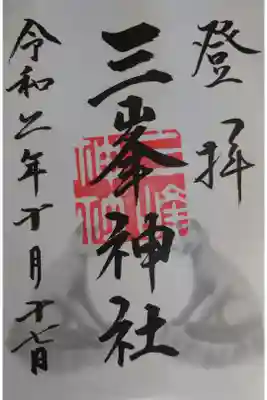 登拝
三峯神社
令和二年十月十七日